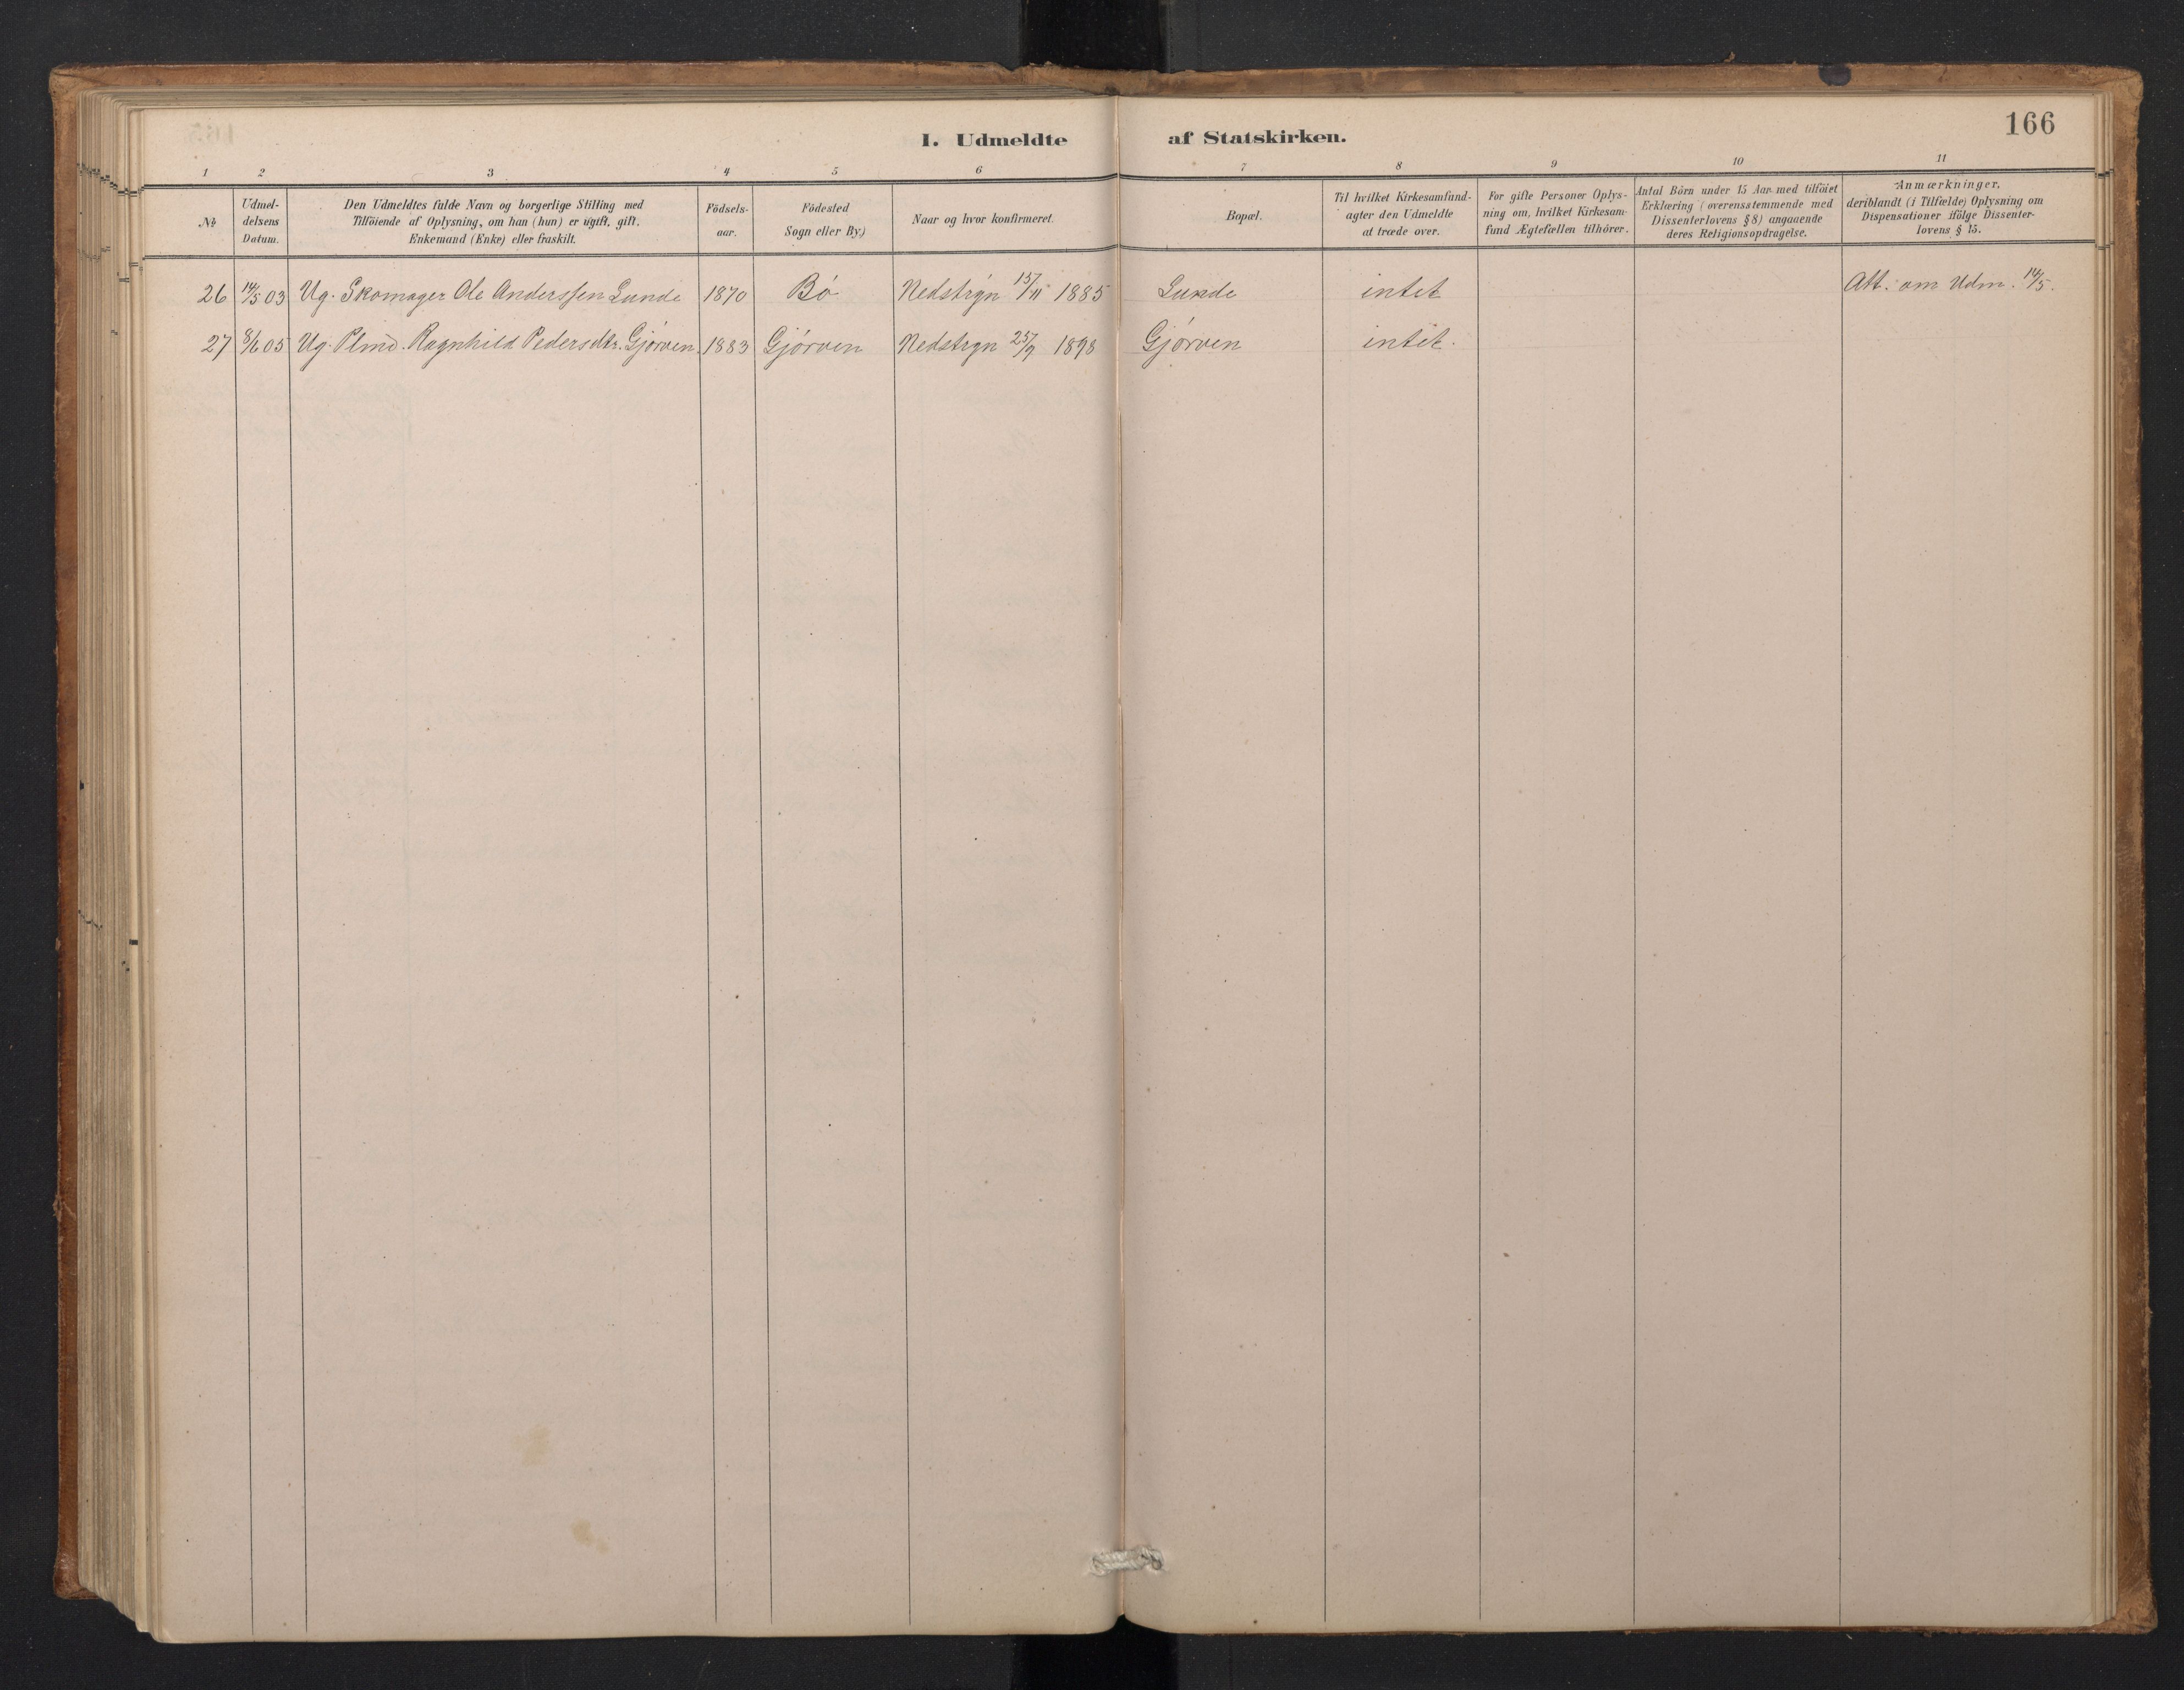 166
I. Udmeldte af Statskirken.
1 2 3 4 5 6 7 8 9 10 11
№
Udmel-
delsens
Datum.
Den Udmeldtes fulde Navn og borgerlige Stilling med
Tilföiende af Oplysning, om han (hun) er ugift, gift,
Enkemand (Enke) eller fraskilt.
Födsels-
aar.
Födested
Sogn eller By)
Naar og hvor konfirmeret.
Bopæl.
Til hvilket Kirkesamfund-
agter den Udmeldte
at træde over.
For gifte Personer Oplys-
ning om, hvilket Kirkesam-
fund Ægtefællen tilhörer.
Antal Börn under 15 Aar med tilföiet
Erklæring (overensstemmende med
Dissenterlovens § 8) angaaende
deres Religionsopdragelse.
Anmærkninger,
deriblandt (i Tilfælde) Oplysning om
Dispensationer ifölge Dissenter-
lovens § 15.
26 14/5 03 Ug. Skomager Ole Anderssen Lunde 1870 Bö Nedstryn 15/11 1885 Lunde intet Att. om Udm. 14/5.
27 8/6 05 Ug. Plmd. Ragnhild Pedersdtr. Gjörven 1883 Gjörven Nedstryn 25/9 1898 Gjörven intet.